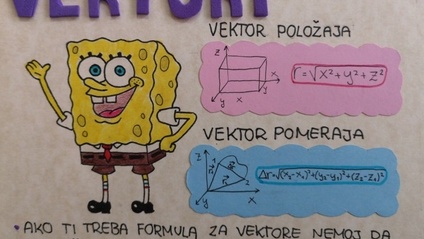 VEKTORI
VEKTOR POLOŽAJA
z
x
y
r=√x²+y²+z²
VEKTOR POMERAJA
z
y
x
Δr=√(x₂-x₁)²+(y₂-y₁)²+(z₂-z₁)²
• AKO TI TREBA FORMULA ZA VEKTORE NEMOJ DA